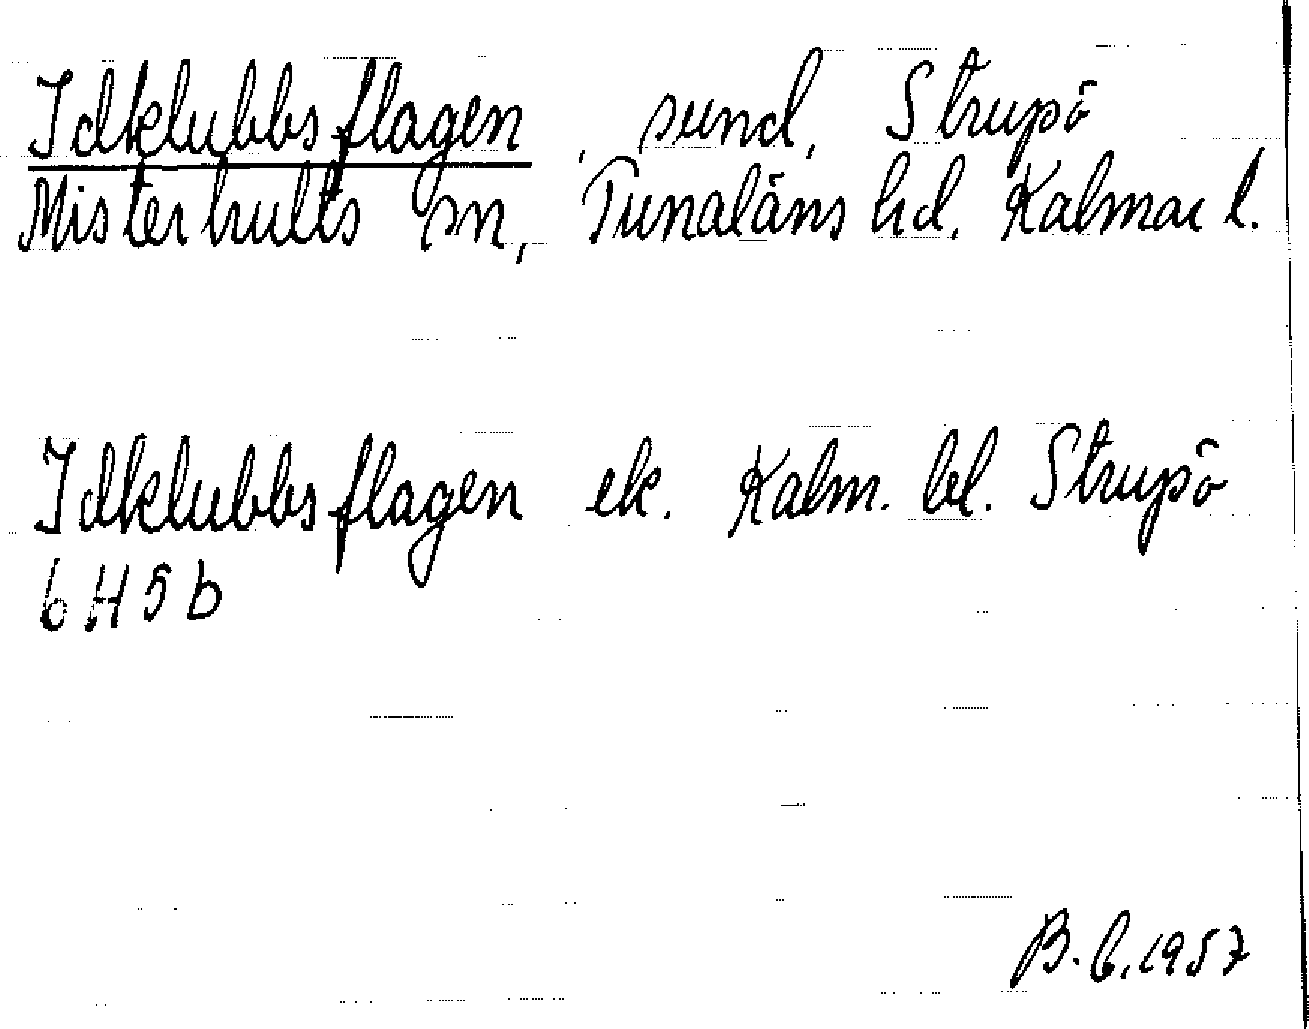 Idklubbsflagen, sund, Strupö
Misterhults sn, Tunaläns hd, Kalmar l.
Idklubbsflagen ek. Kalm. bl. Strupö
6H5b
B.G.1957